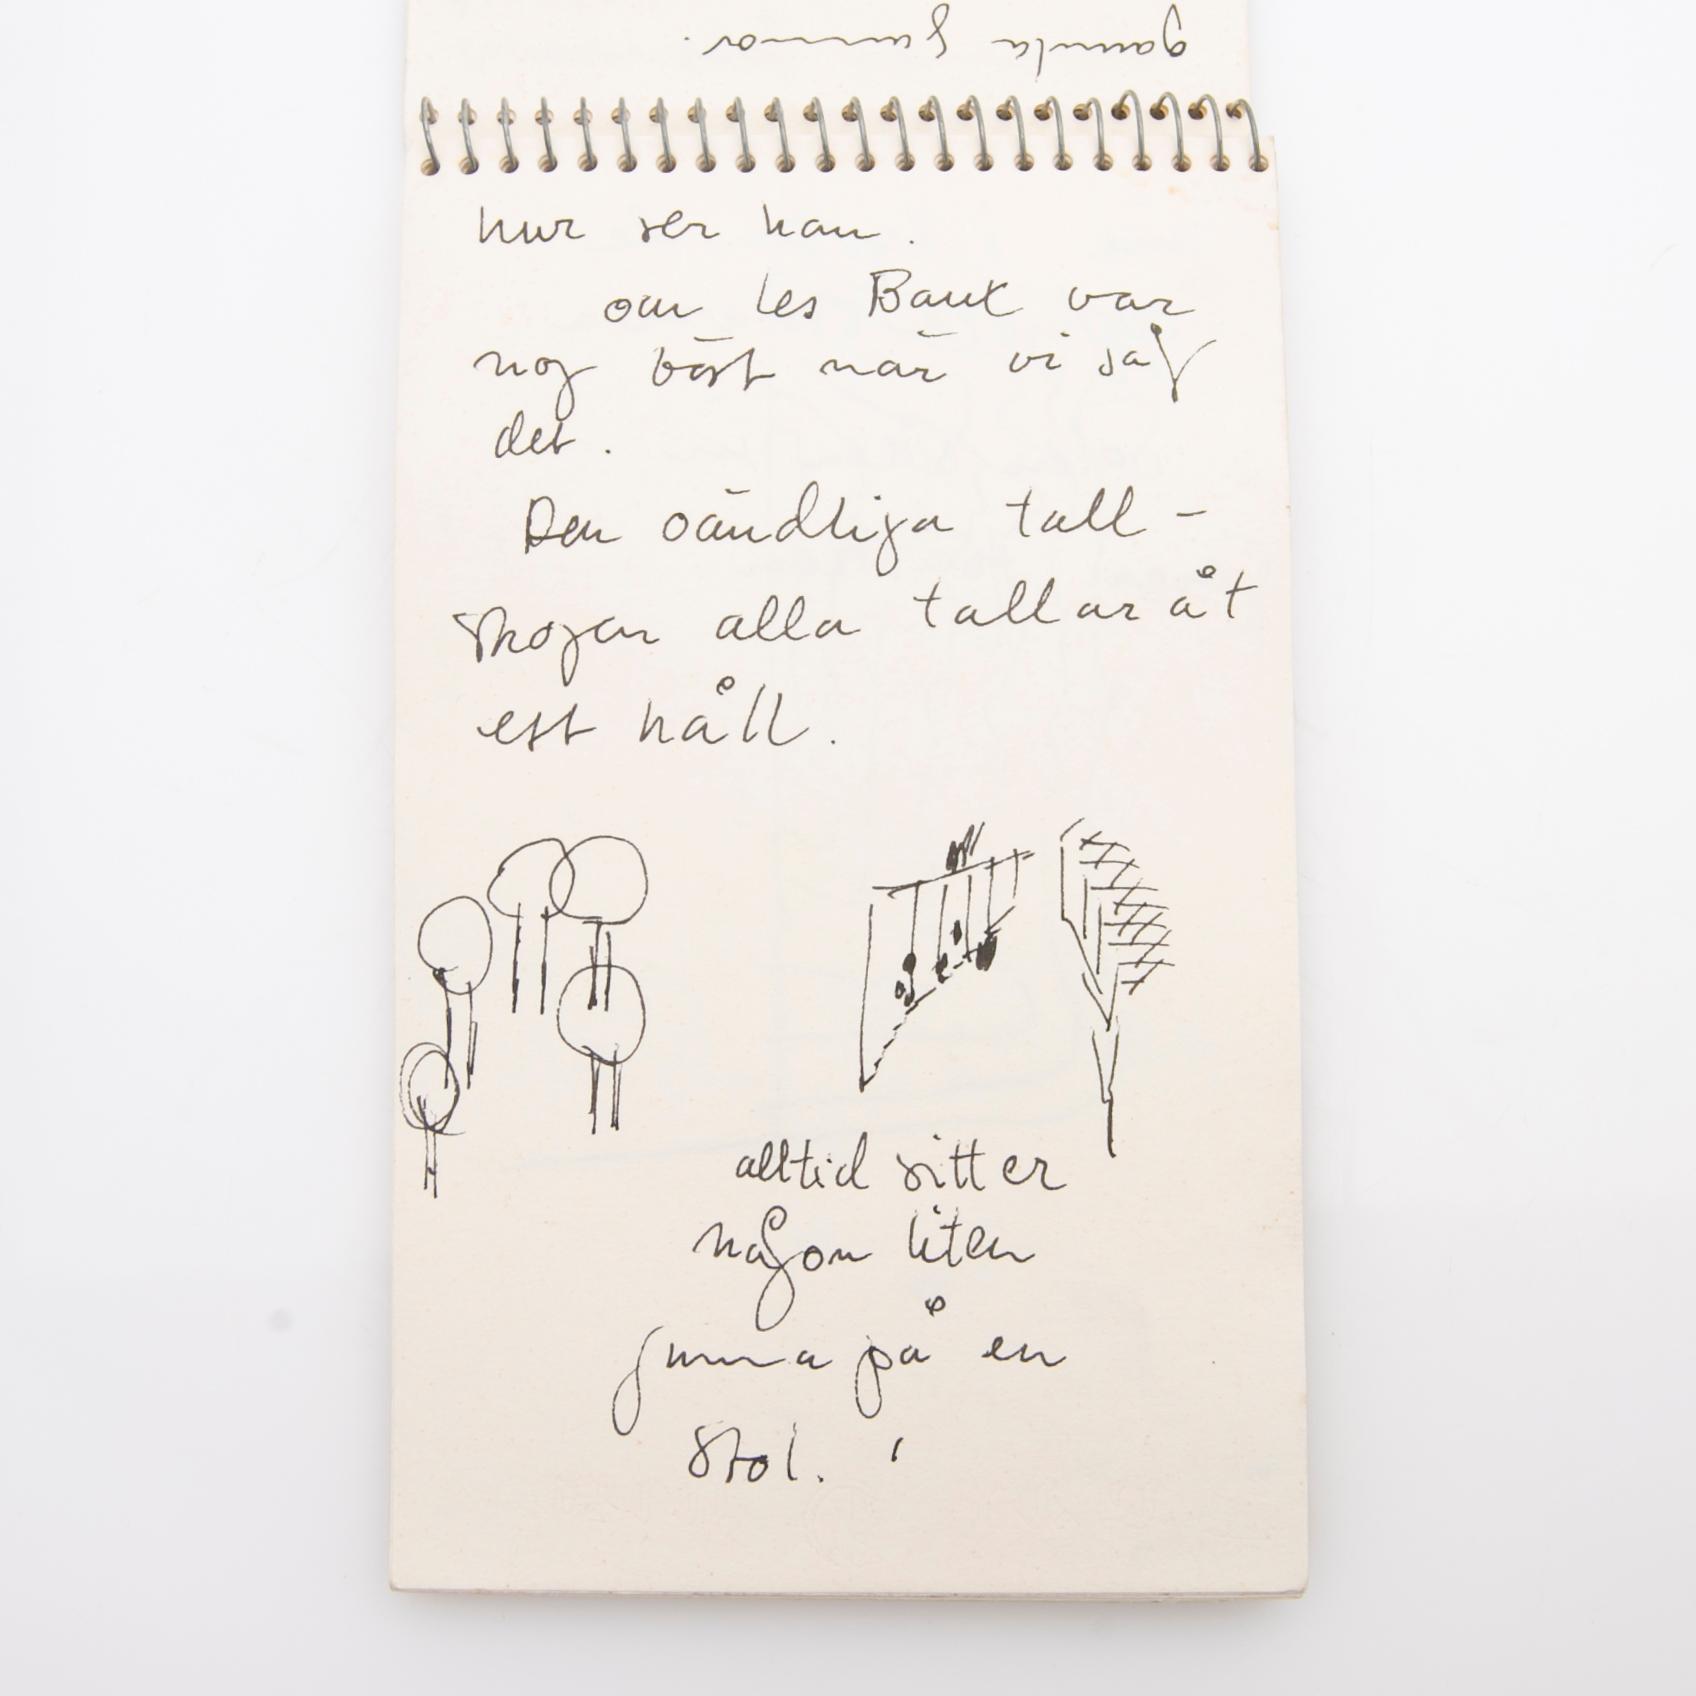 gamla gummor.
hur ser han.
om les Baux var
nog bäst när vi såg
det.
Den oändliga tall-
skogen alla tallar åt
ett håll.
alltid sitter
någon liten
gumma på en
stol.